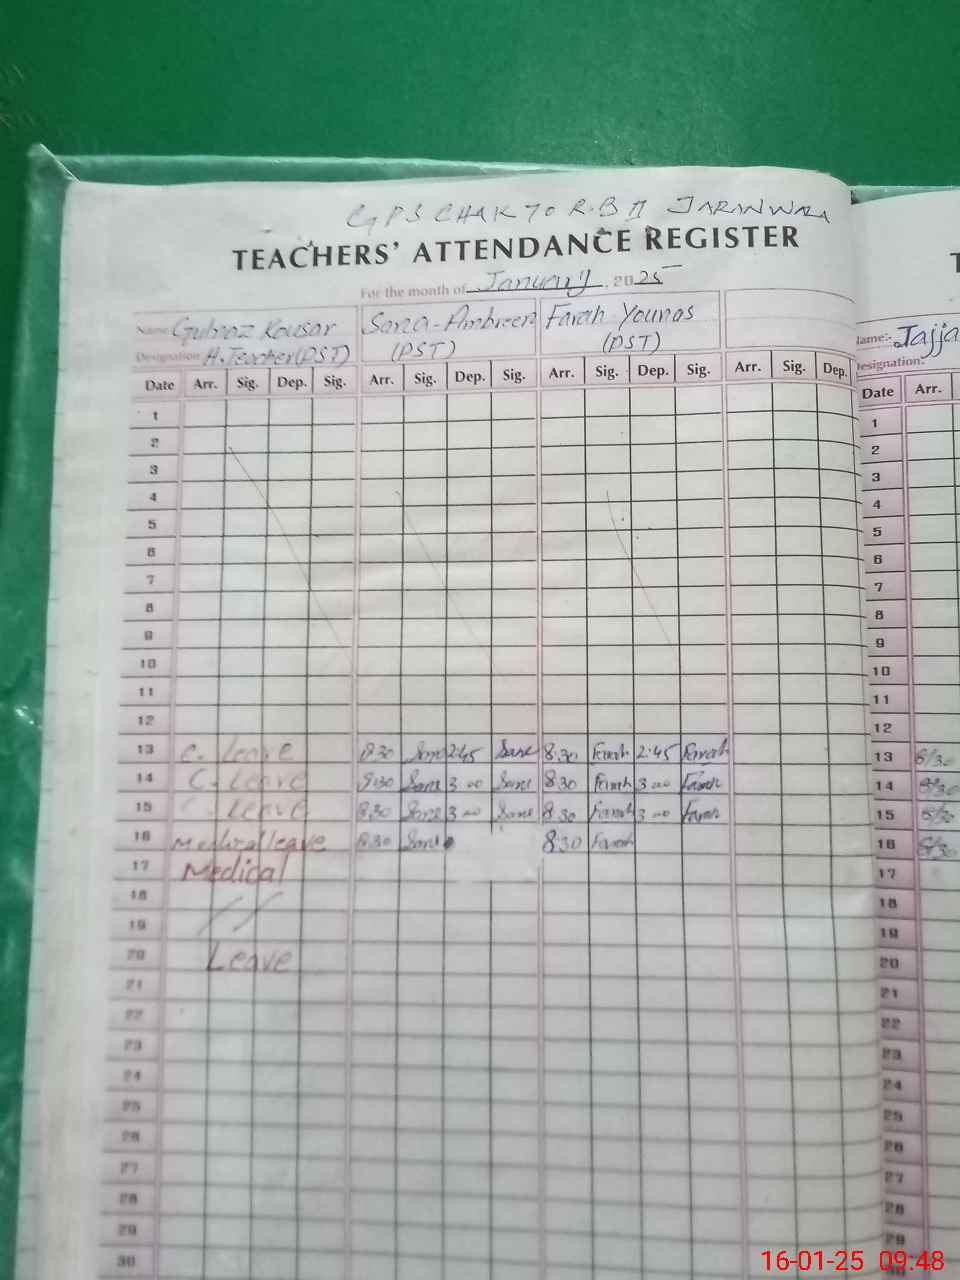 GPS CHAK 70 R.B II JARANWALA
TEACHERS' ATTENDANCE REGISTER
For the month of January, 2025
Name Gulnaz Kousar Sana-Ambreen Farah Younas
Designation H.Teacher(PST) (PST) (PST)
Date Arr. Sig. Dep. Sig. Arr. Sig. Dep. Sig. Arr. Sig. Dep. Sig. Arr. Sig. Dep.
1
2
3
4
5
6
7
8
9
10
11
12
13 C. Leave 8:30 Sana 2:45 Sana 8:30 Farah 2:45 Farah
14 C. Leave 8:30 Sana 3:00 Sana 8:30 Farah 3:00 Farah
15 C. Leave 8:30 Sana 3:00 Sana 8:30 Farah 3:00 Farah
16 Medical leave 8:30 Sana 8:30 Farah
17 Medical
18
19 //
20 Leave
21
22
23
24
25
26
27
28
29
30
T
Name:- Jajja
Designation:
Date Arr.
1
2
3
4
5
6
7
8
9
10
11
12
13 8/30
14 8/30
15 8/30
16 8/30
17
18
19
20
21
22
23
24
25
26
27
28
29
30
16-01-25 09:48